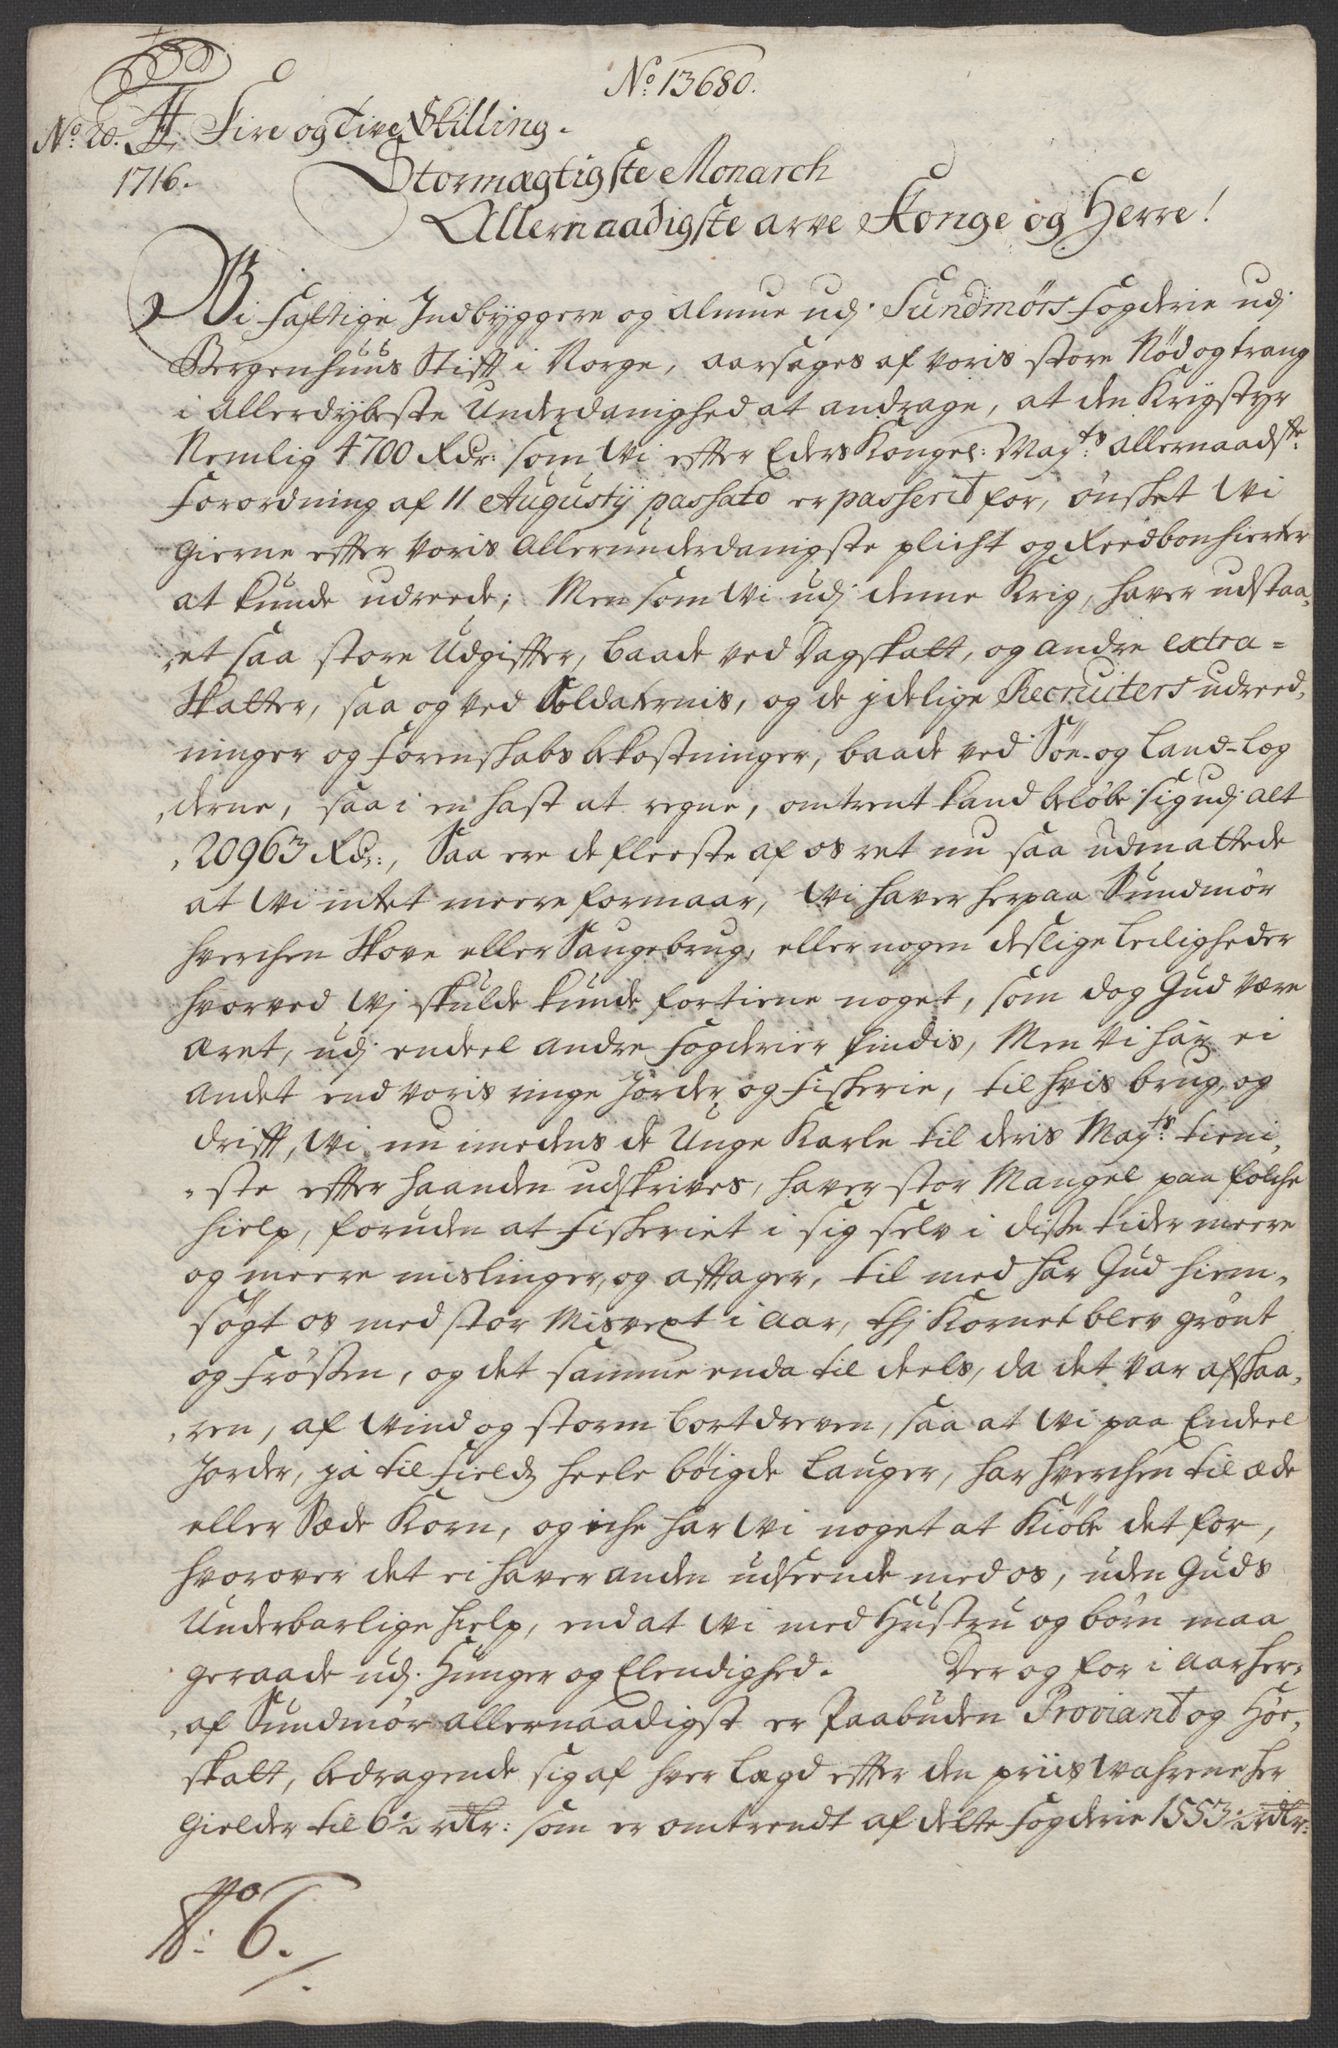 No 13680.
No. 20. Fire og Tive Skilling.
1716.
Stormægtigste Monarch
Allernaadigste arve Konge og Herre!
Vi fattige Indbyggere og almue udj Sundmørs fogderie udj
Bergenhuus Stift i Norge, aarsages af voris store Nød og trang
i allerdybeste Underdanighed at andrage, at den Krigstyr
Nemlig 4700 Rdr: som Wi efter Eders Kongel: Mayts: allernaadste.
Forordning af 11 Augustij passato er passerit for, ønsket Wi
gierne effter voris allerunderdanigste plicht og Reedbonhierter
at kunde udreede; Men som Wi udj denne Krig, haver udstaa,
,et saa store Udgiffter, baade ved Dagskatt, og andre extra=
Skatter, saa og ved Soldaternis, og de jdelige Recruiters udreed,
ninger og forenskabs bekostninger, baade ved Søe- og Land-Læg
,derne, saa i en hast at regne, omtrent kand beløbe sig udj alt
,20963 Rdr:, Saa ere de fleeste af os ret nu saa udmattede
at Wi intet meere formaar, Wi haver her paa Sundmør
hverchen Skove eller Saugebrug, eller nogen deslige leiligheder
hvorved Wj skulde kunde fortiene noget, som dog Gud være
æret, udj endeel andre fogderier findis, Men Vi har ei
andet end voris ringe Jorder og Fiskerie, til hvis brug og
drifft, Wi nu imedens de Unge Karle til deris Mayts: tieni,
,ste effter haanden udskrives, haver stor Mangel paa folche
hielp, foruden at Fiskeriet i sig selv i disse tider meere
og meere mislinger, og afftager, til med har Gud hiem,
søgt os med stor Misvext i aar, thj Kornet blev grønt
og frøssen, og det samme enda til deels, da det var afskaa,
,ren, af Wind og storm bortdreven, saa at Wi paa Endeel
Jorder, ja til fields heele bøigde lauger, har hverchen til æde
eller Sæde Korn, og iche har Wi noget at Kiøbe det for,
hvorover det ei haver anden udseende med os, uden Guds
Underbarlige hielp, end at Wi med Hustru og børn maa
geraade udj Hunger og Elendighed. Der og for i aar her,
,af Sundmør allernaadigst er Paabuden Proviant og Høe,
skatt, bedragende sig af hver Lægd effter den priis Wahrene her
gielder til 6½ rdr: som er omtrendt af dette fogderie 1553½ rdr:
No: 6.